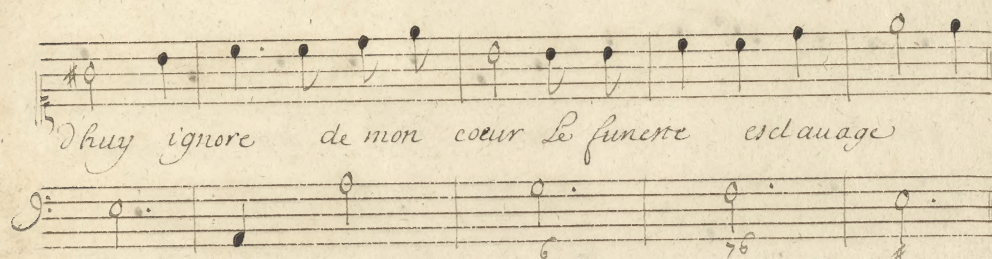 d'huy ignore de mon coeur Le funeste esclauage
6 76 #